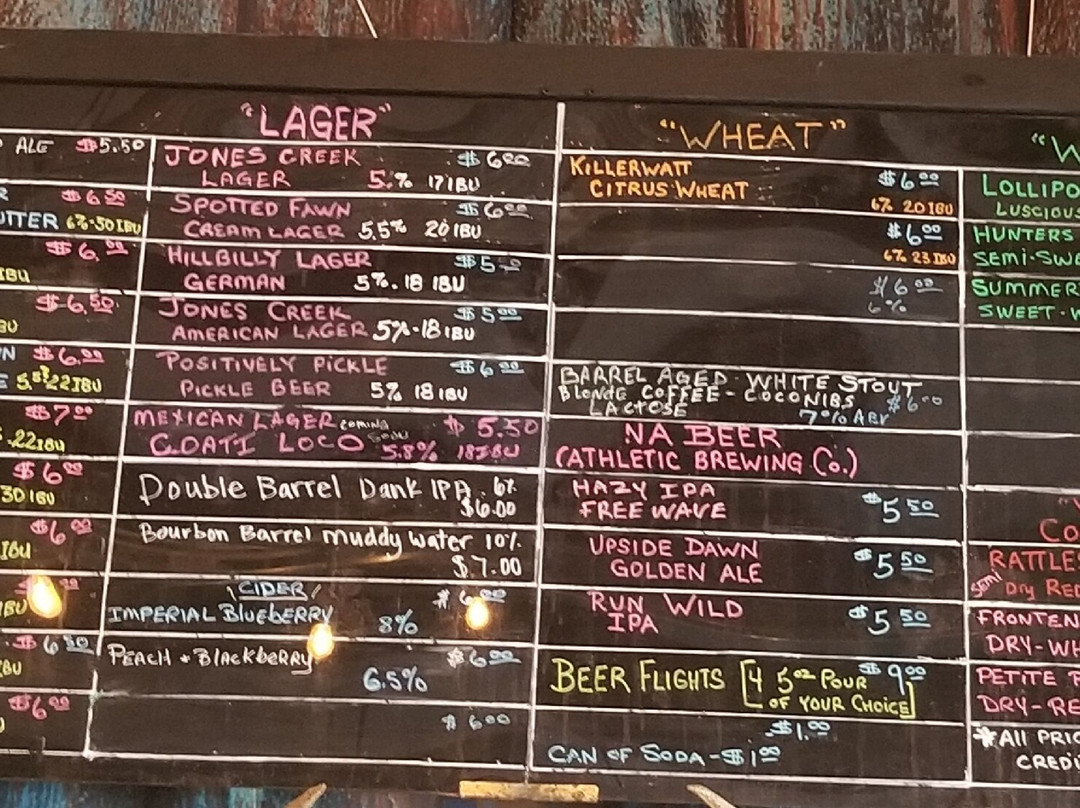 ALE $5.50
$6.50
UTTER 6%-50IBU
$6.00
IBU
$6.50
BU
N $6.00
E 5.5% 22IBU
$7.00
.22IBU
$6.00
30 IBU
$6.00
IBU
BU
$6.50
BU
$6.00
"LAGER"
JONES CREEK $6.00
LAGER 5.% 17IBU
SPOTTED FAWN $6.00
CREAM LAGER 5.5% 20 IBU
HILLBILLY LAGER $5.00
GERMAN 5%.18 IBU
JONES CREEK $5.00
AMERICAN LAGER 5%-18 IBU
POSITIVELY PICKLE $6.00
PICKLE BEER 5% 18 IBU
MEXICAN LAGER COMING SOON $5.50
COATI LOCO 5.8% 18IBU
Double Barrel Dank IPA . 6%
$6.00
Bourbon Barrel muddy water 10%
$7.00
CIDER
IMPERIAL BlueBERRY 8%
PEACH + BlackbeRRy $6.00
6.5%
$6.00
"WHEAT"
KILLERWATT
CITRUS WHEAT $6.00
6% 20IBU
$6.00
6% 23 IBU
$6.00
6%
BARREL AGED - WHITE STOUT
Blonde COFFEE - COCONIBS $6.00
LACTOSE 7% ABV
NA BEER
(ATHLETIC BREWING Co.)
HAZY IPA
FREE WAVE $5.50
UPSIDE DAWN
GOLDEN ALE $5.50
RUN WILD
IPA $5.50
BEER FLIGHTS [4 5oz POUR $9.00
OF YOUR CHOICE]
$1.00
CAN OF SODA - $1.00
"W
LOLLIPO
LUSCIOUS
HUNTERS
SEMI-SWE
SUMMER
SWEET-W
Co
RATTLES
SEMI Dry RED
FRONTEN
DRY-WH
PETITE P
DRY-RE
*All PRIC
CREDI